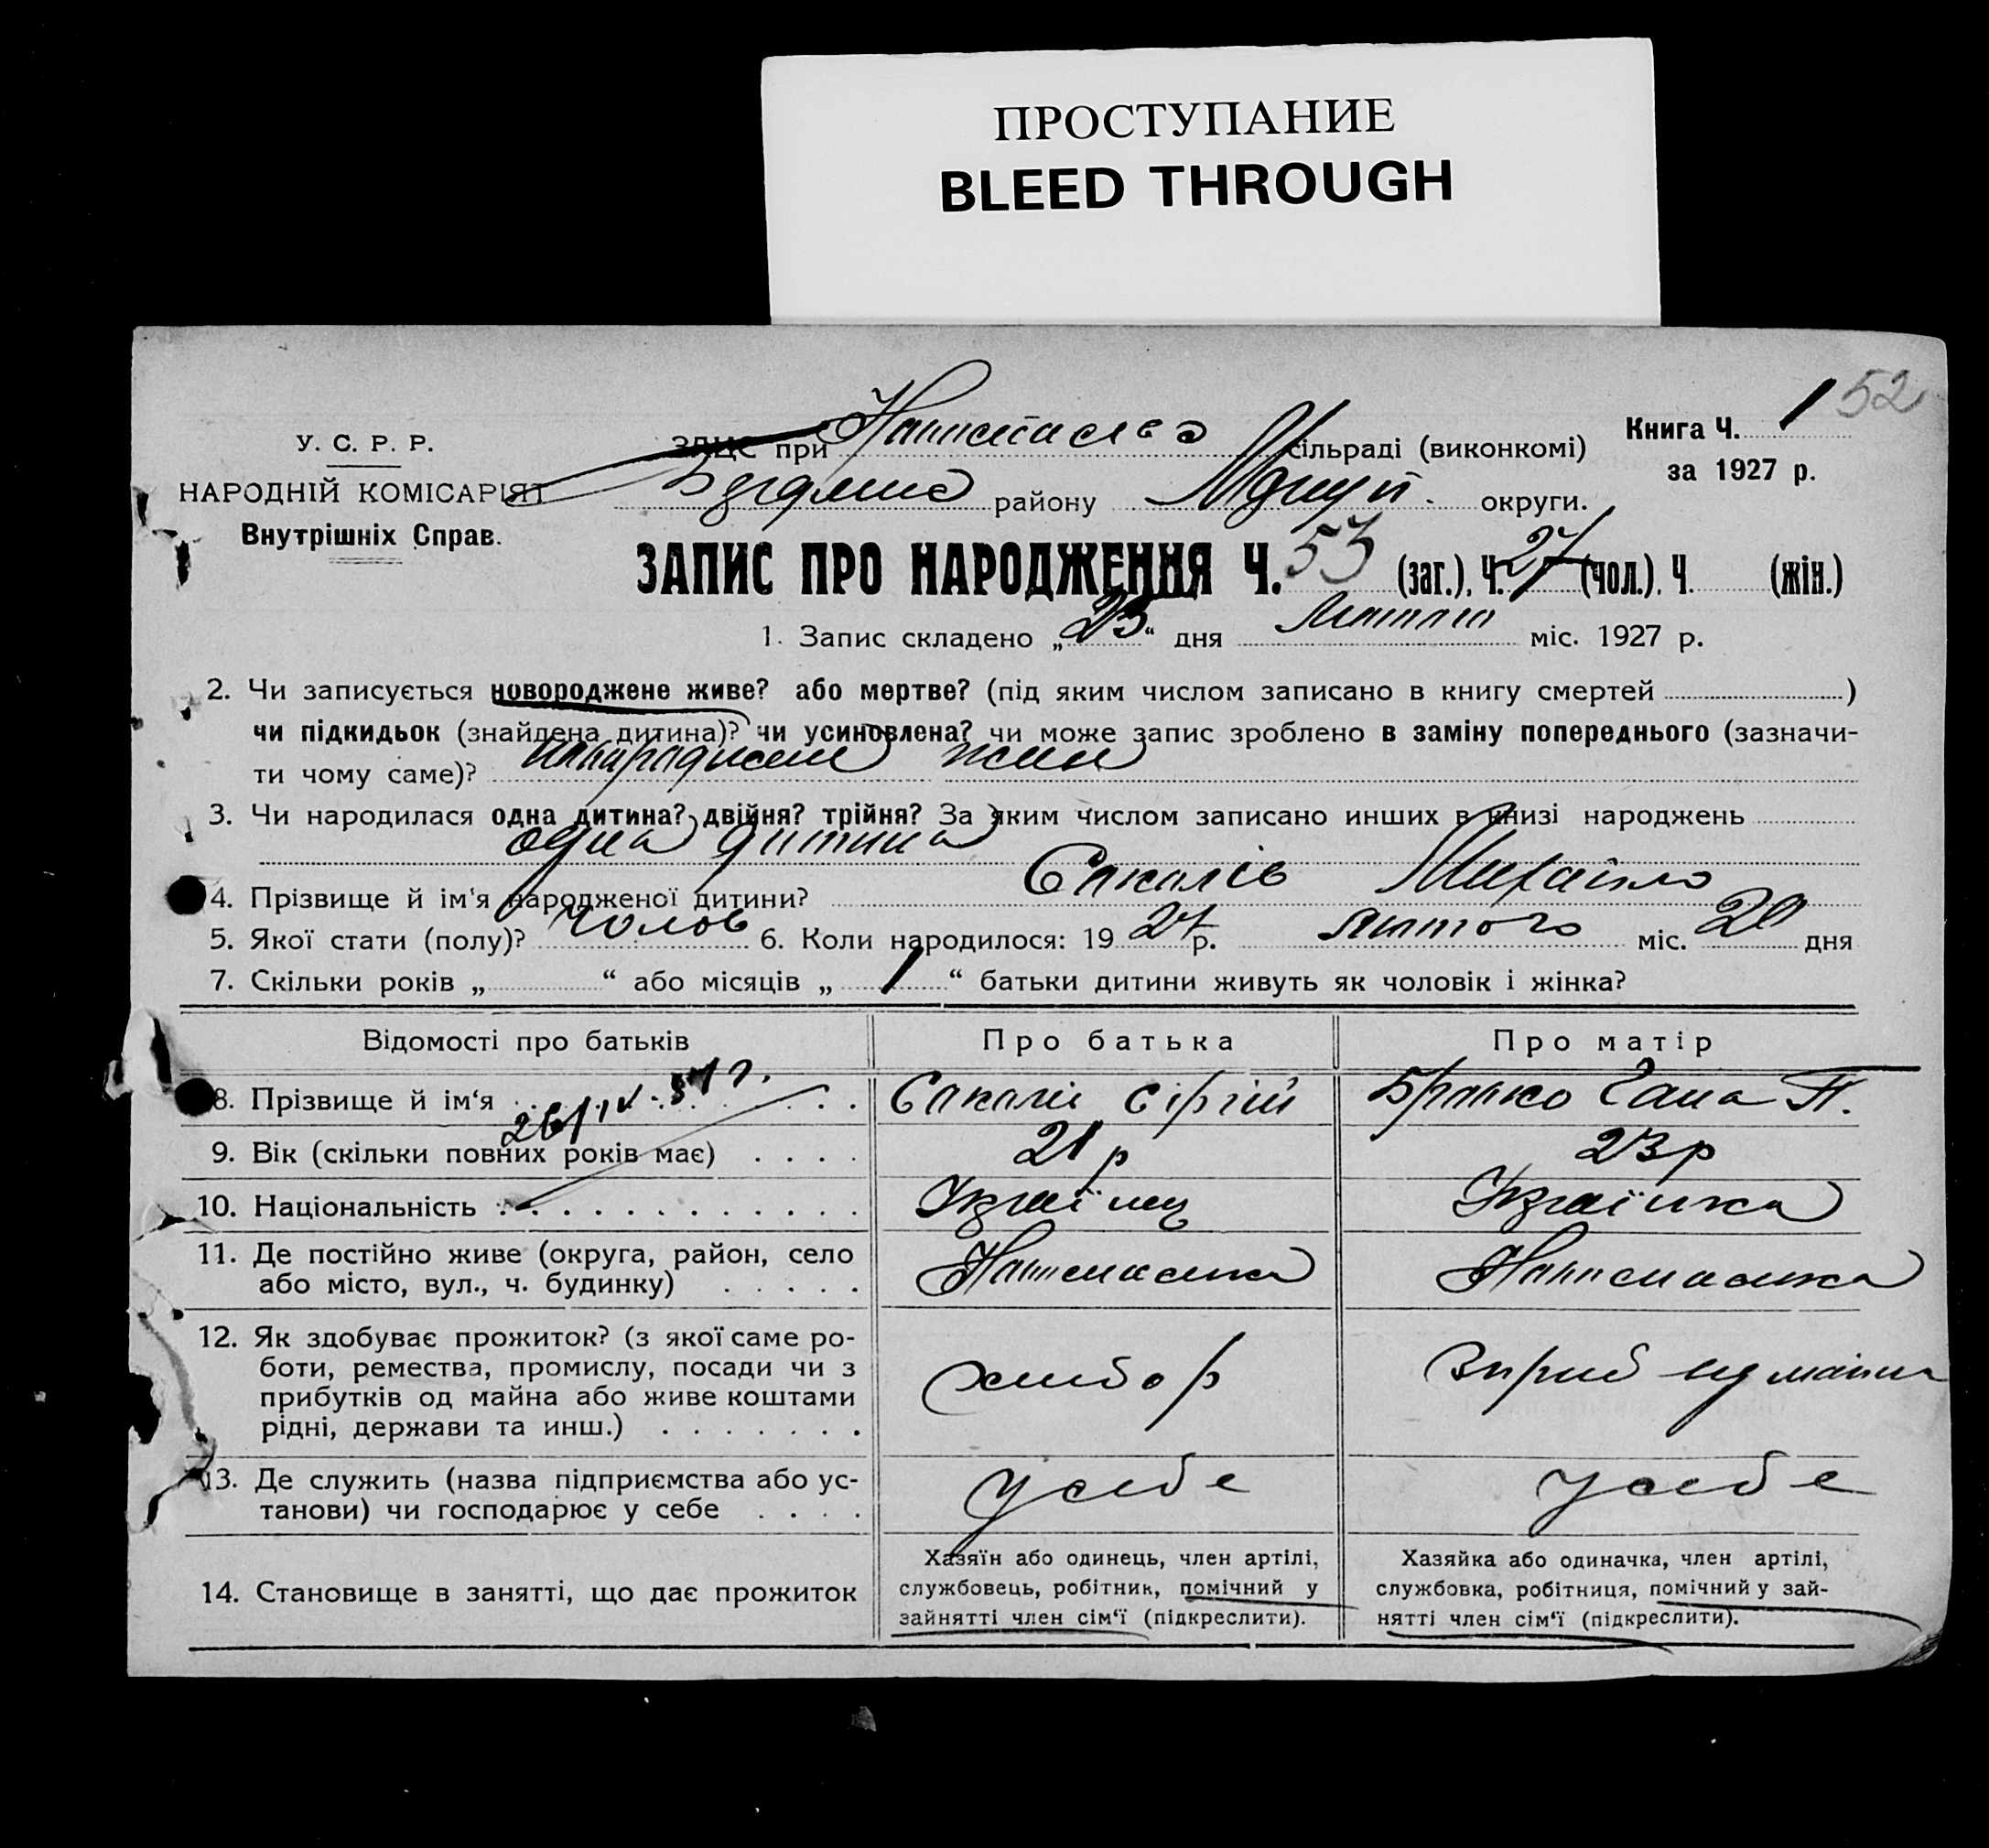 ПРОСТУПАНИЕ
BLEED THROUGH
52
У. С. Р. Р.
НАРОДНІЙ КОМІСАРІЯТ
Внутрішніх Справ.
ЗАЦС при сільраді (виконкомі)
району округи.
Книга Ч. 1
за 1927 р.
ЗАПИС ПРО НАРОДЖЕННЯ Ч. 53 (заг.), Ч. 27 (чол.), Ч. (жін.)
1. Запис складено „23“ дня лютого міс. 1927 р.
2. Чи записується новороджене живе? або мертве? (під яким числом записано в книгу смертей )
чи підкидьок (знайдена дитина)? чи усиновлена? чи може запис зроблено в заміну попереднього (зазначи-
ти чому саме)?
3. Чи народилася одна дитина? двійня? трійня? За яким числом записано инших в книзі народжень
одна дитина
4. Прізвище й ім'я народженої дитини? Михайло
5. Якої стати (полу)? чолов 6. Коли народилося: 1927 р. лютого міс. 20 дня
7. Скільки років „ “ або місяців „ 1 “ батьки дитини живуть як чоловік і жінка?
Відомості про батьків Про батька Про матір
8. Прізвище й ім‘я
9. Вік (скільки повних років має) . . . . 21 р 23 р
10. Національність Українец Українка
11. Де постійно живе (округа, район, село
або місто, вул., ч. будинку) . . . . .
12. Як здобуває прожиток? (з якої саме ро-
боти, ремества, промислу, посади чи з
прибутків од майна або живе коштами
рідні, держави та инш.) . . . . . . .
хлибор
13. Де служить (назва підприємства або ус-
танови) чи господарює у себе . . . .
у себе у себе
14. Становище в занятті, що дає прожиток
Хазяїн або одинець, член артілі,
службовець, робітник, помічний у
зайнятті член сім‘ї (підкреслити).
Хазяйка або одиначка, член артілі,
службовка, робітниця, помічний у зай-
нятті член сім‘ї (підкреслити).